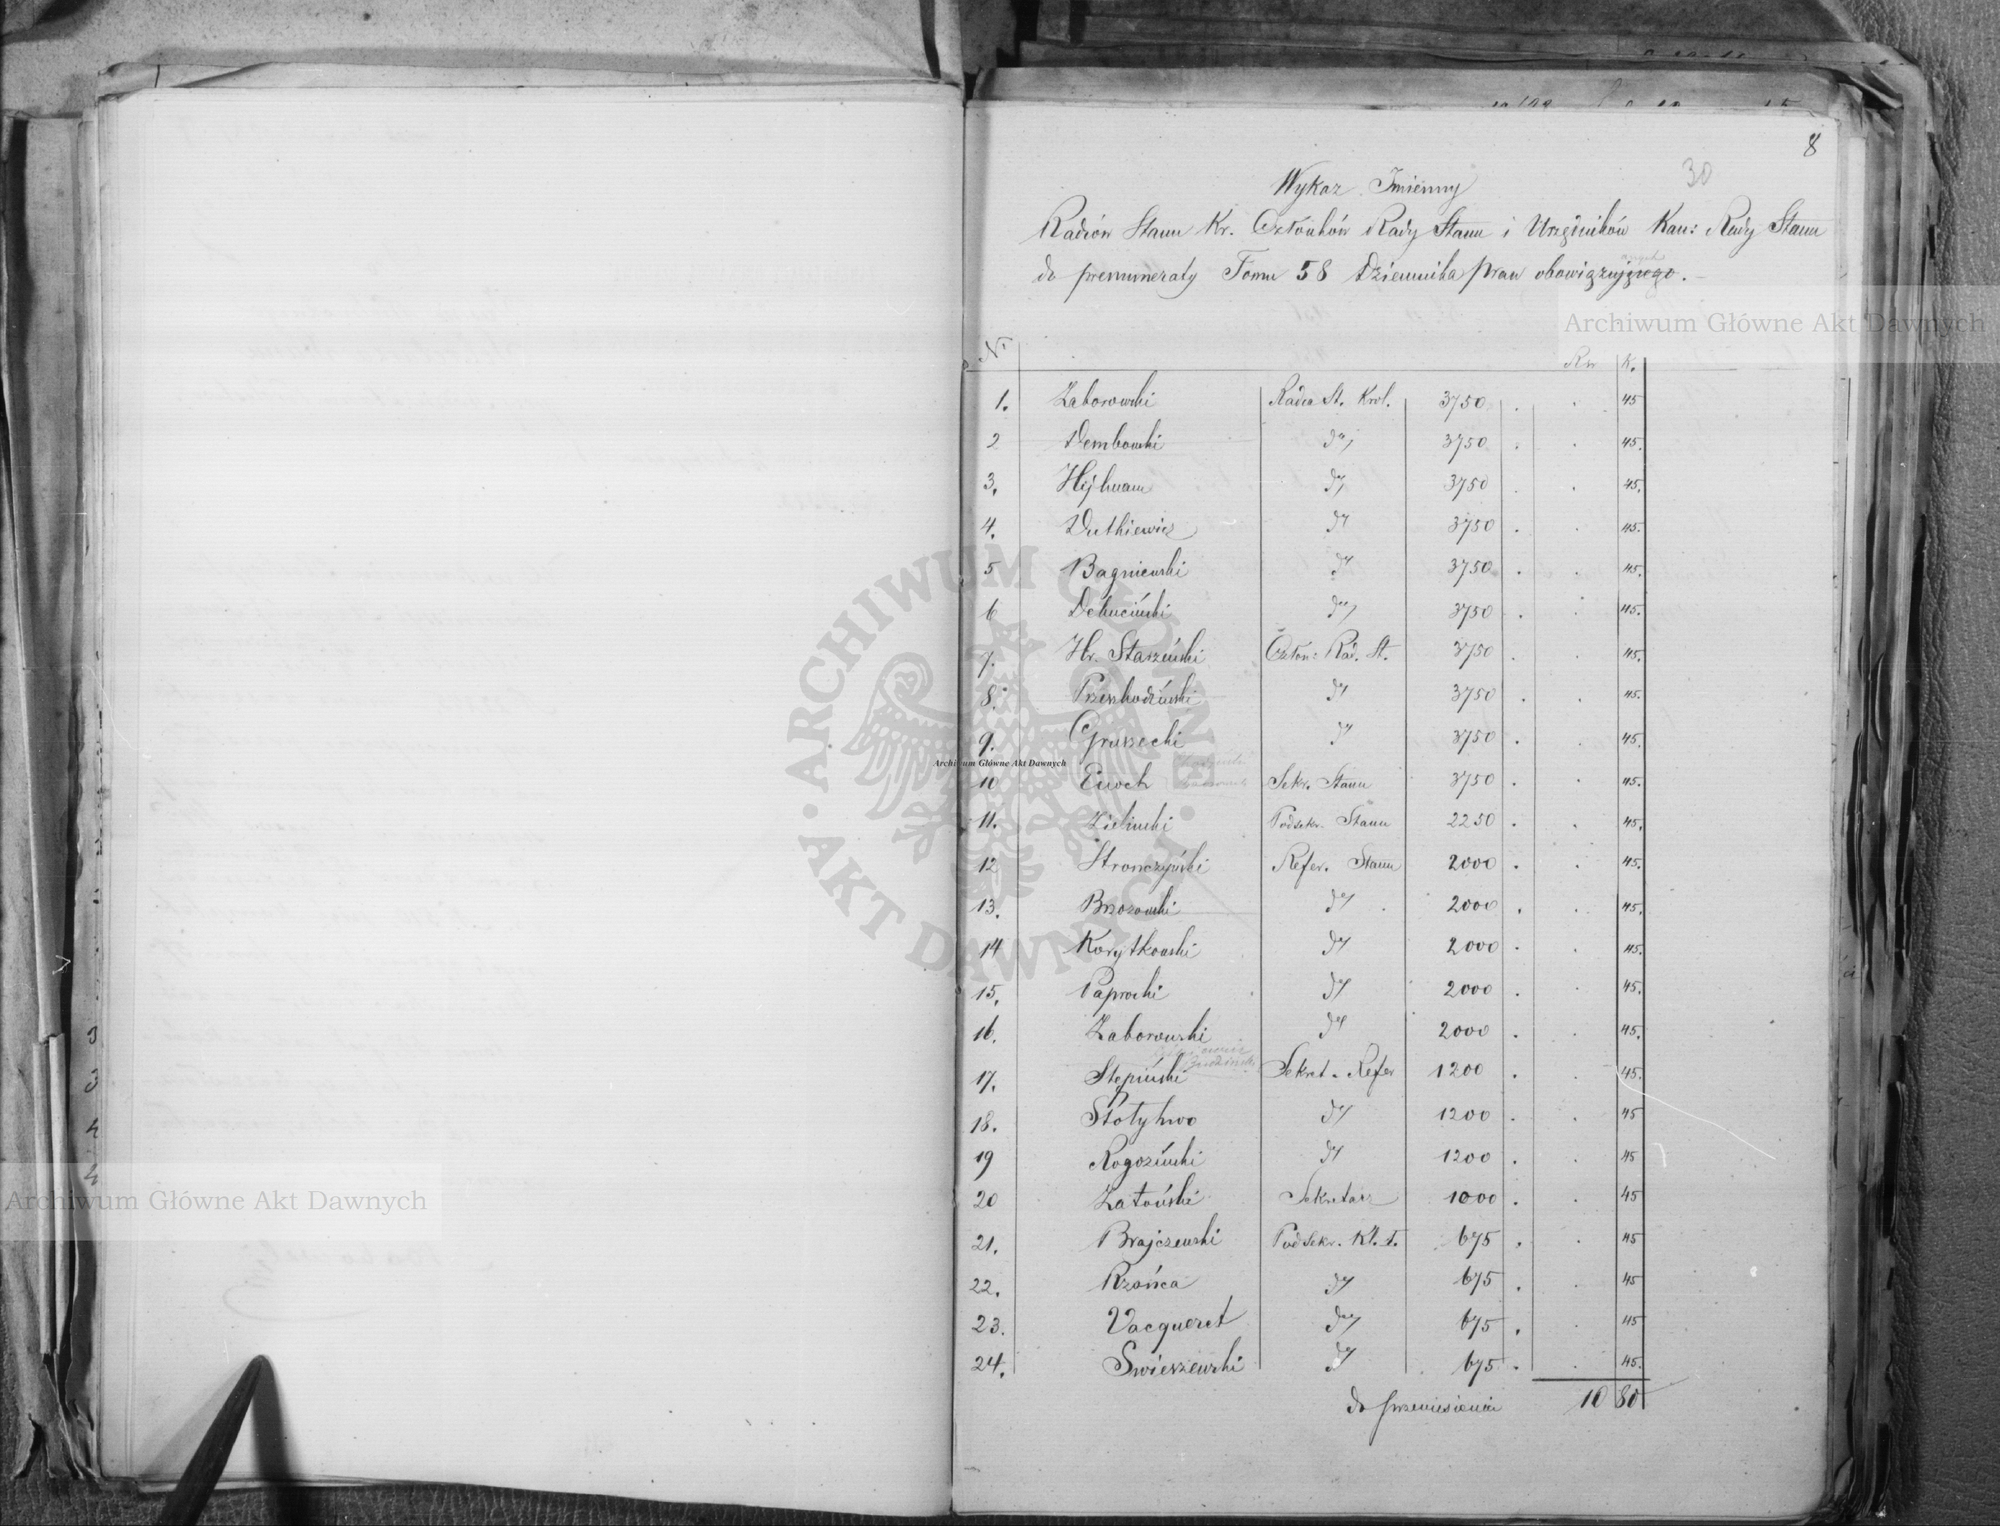 8
30
Wykaz Imienny
Radców Stanu Kr. Członków Rady Stanu i Urzędników Kan: Rady Stanu
do prenumeraty Tomu 58 Dziennika praw obowiązującego. -
Archiwum Główne Akt Dawnych
Nr Rsr K.
1. Zaborowski Radca St. Król. 3750 . . 45
2 Dembowski dº 3750 . . 45.
3. Hejlman dº 3750 . . 45.
4. Dutkiewicz dº 3750 . . 45.
5 Bagniewski dº 3750 . . 45.
6 Dębuciński dº 3750 . . 45.
7. Hr. Starzeński Człon: Rad. St. 3750 . . 45.
8. Przeszkodziński dº 3750 . . 45.
9. Gruszecki dº 3750 . . 45.
10 Enoch Sekr. Stanu 3750 . . 45.
11. Zieliński Podsekr. Stanu 2250 . . 45.
12 Stronczyński Refer. Stanu 2000 . . 45.
13. Brzozowski dº 2000 . . 45.
14 Korytkowski dº 2000 . . 45.
15. Paprocki dº 2000 . . 45.
16. Zaborowski dº 2000 . . 45.
17. Stępiński Sekret. Refer 1200 . . 45.
18. Stołyhwo dº 1200 . . 45
19 Rogoziński dº 1200 . . 45
20 Zatoński Sekretarz 1000 . . 45
21. Brajczewski Podsekr. Kl. I. 675 . . 45
22. Rzońca dº 675 . . 45
23. Vacqueret dº 675 . . 45
24. Swieszewski dº 675 . . 45.
do przeniesienia 10 80
ARCHIWUM GŁÓWNE AKT DAWNYCH
Archiwum Główne Akt Dawnych
Archiwum Główne Akt Dawnych